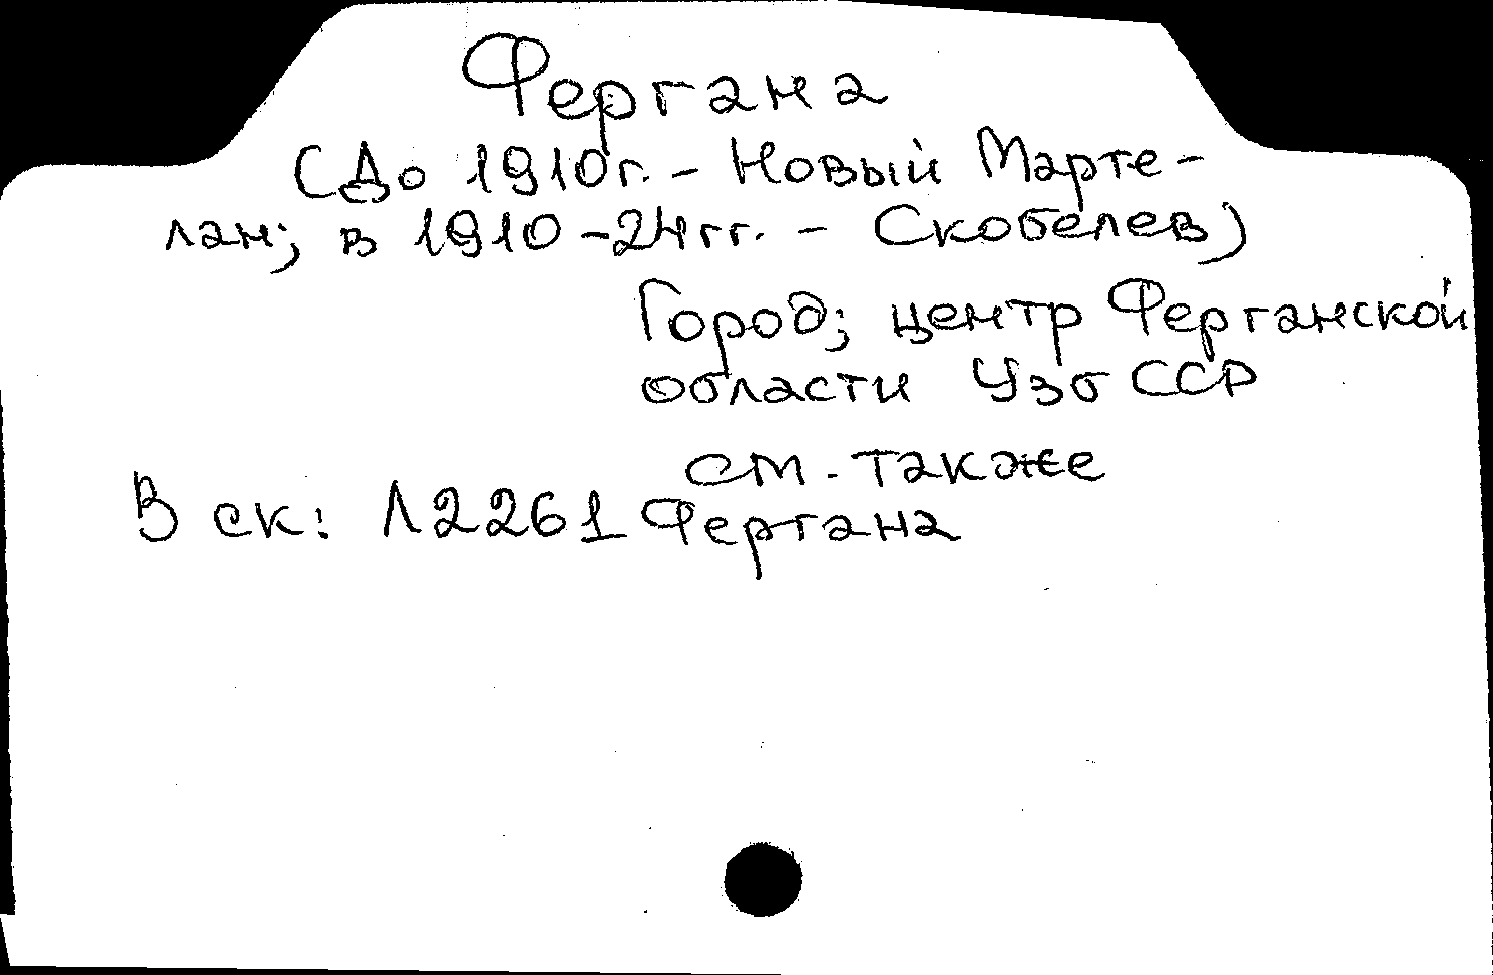 Фергана
(До 1910г. - Новый Марге-
лан; в 1910-24гг. - Скобелев)
Город; центр Ферганской
области УзбССР
см. также
В ск: Л2261 Фергана